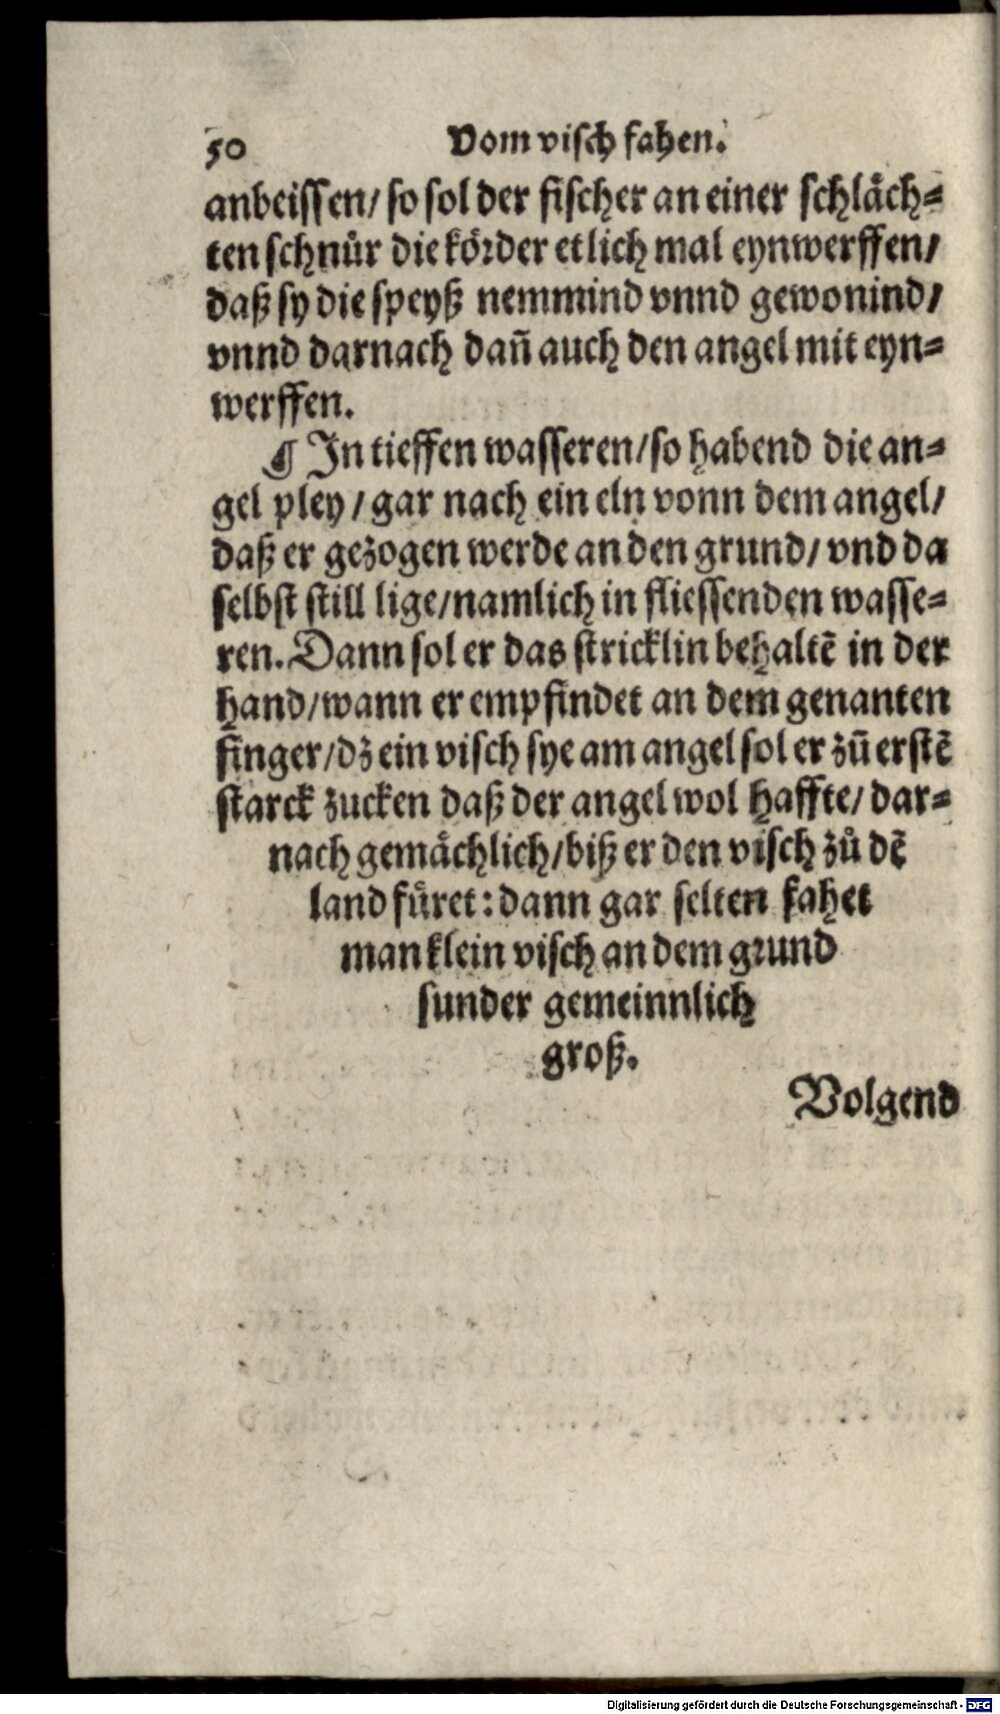 50 Vom visch fahen.
anbeissen/ so sol der fischer an einer schlåch⸗
ten schnůr die kôrder etlich mal eynwerffen/
daß sy die speyß nemmind vnnd gewonind/
vnnd darnach dañ auch den angel mit eyn⸗
werffen.
¶ In tieffen wasseren/ so habend die an⸗
gel pley/ gar nach ein eln vonn dem angel/
daß er gezogen werde an den grund/ vnd da
selbst still lige/ namlich in fliessenden wasse⸗
ren. Dann sol er das stricklin behaltē in der
hand/ wann er empfindet an dem genanten
finger/ dz ein visch sye am angel sol er zů erstē
starck zucken daß der angel wol haffte/ dar⸗
nach gemåchlich/ biß er den visch zů dē
land fůret: dann gar selten fahet
man klein visch an dem grund
sunder gemeinnlich
groß.
Volgend
Digitalisierung gefördert durch die Deutsche Forschungsgemeinschaft - DFG